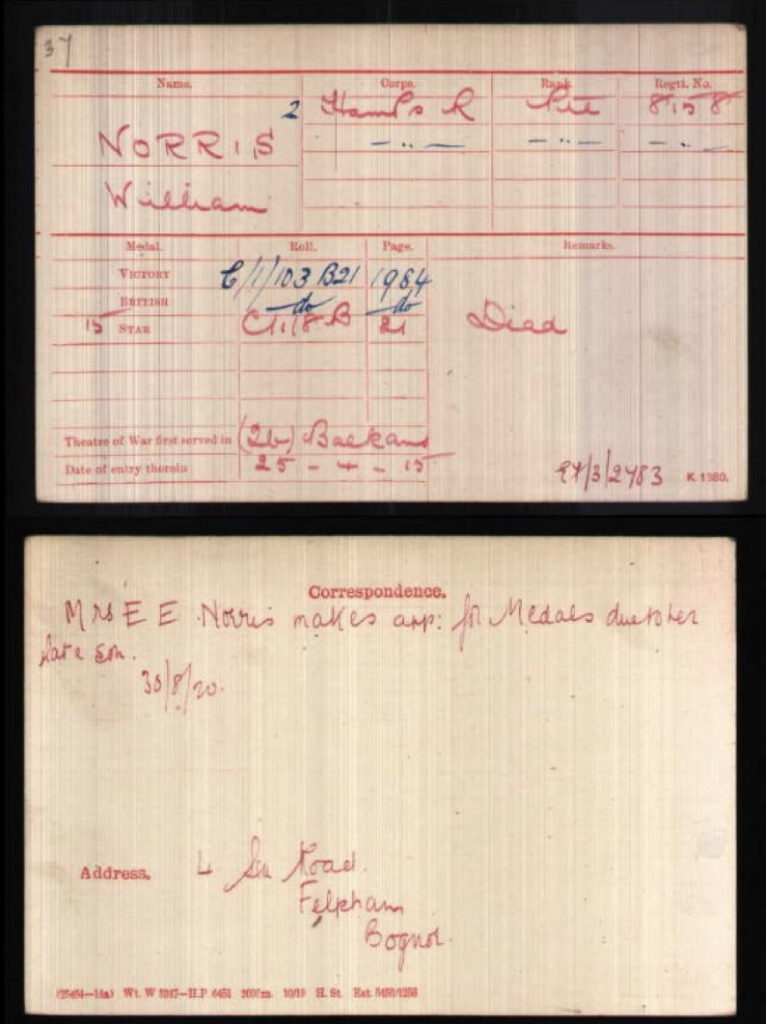 37
Name. Corps. Rank Regtl. No.
2 Hamps R Pte 8158
NORRIS — " — — " — — " —
William
Medal. Roll. Page. Remarks.
VICTORY C/1/103 B21 1984
BRITISH do do
15 STAR C/1/8 B 21 Died
Theatre of War first served in (2b) Balkans
Date of entry therein 25 - 4 - 15
K. 1380.
Correspondence.
Mrs E E Norris makes app: for Medals due to her
late son.
30/8/20.
Address. 4 Sea Road.
Felpham
Bognor.
H. St.